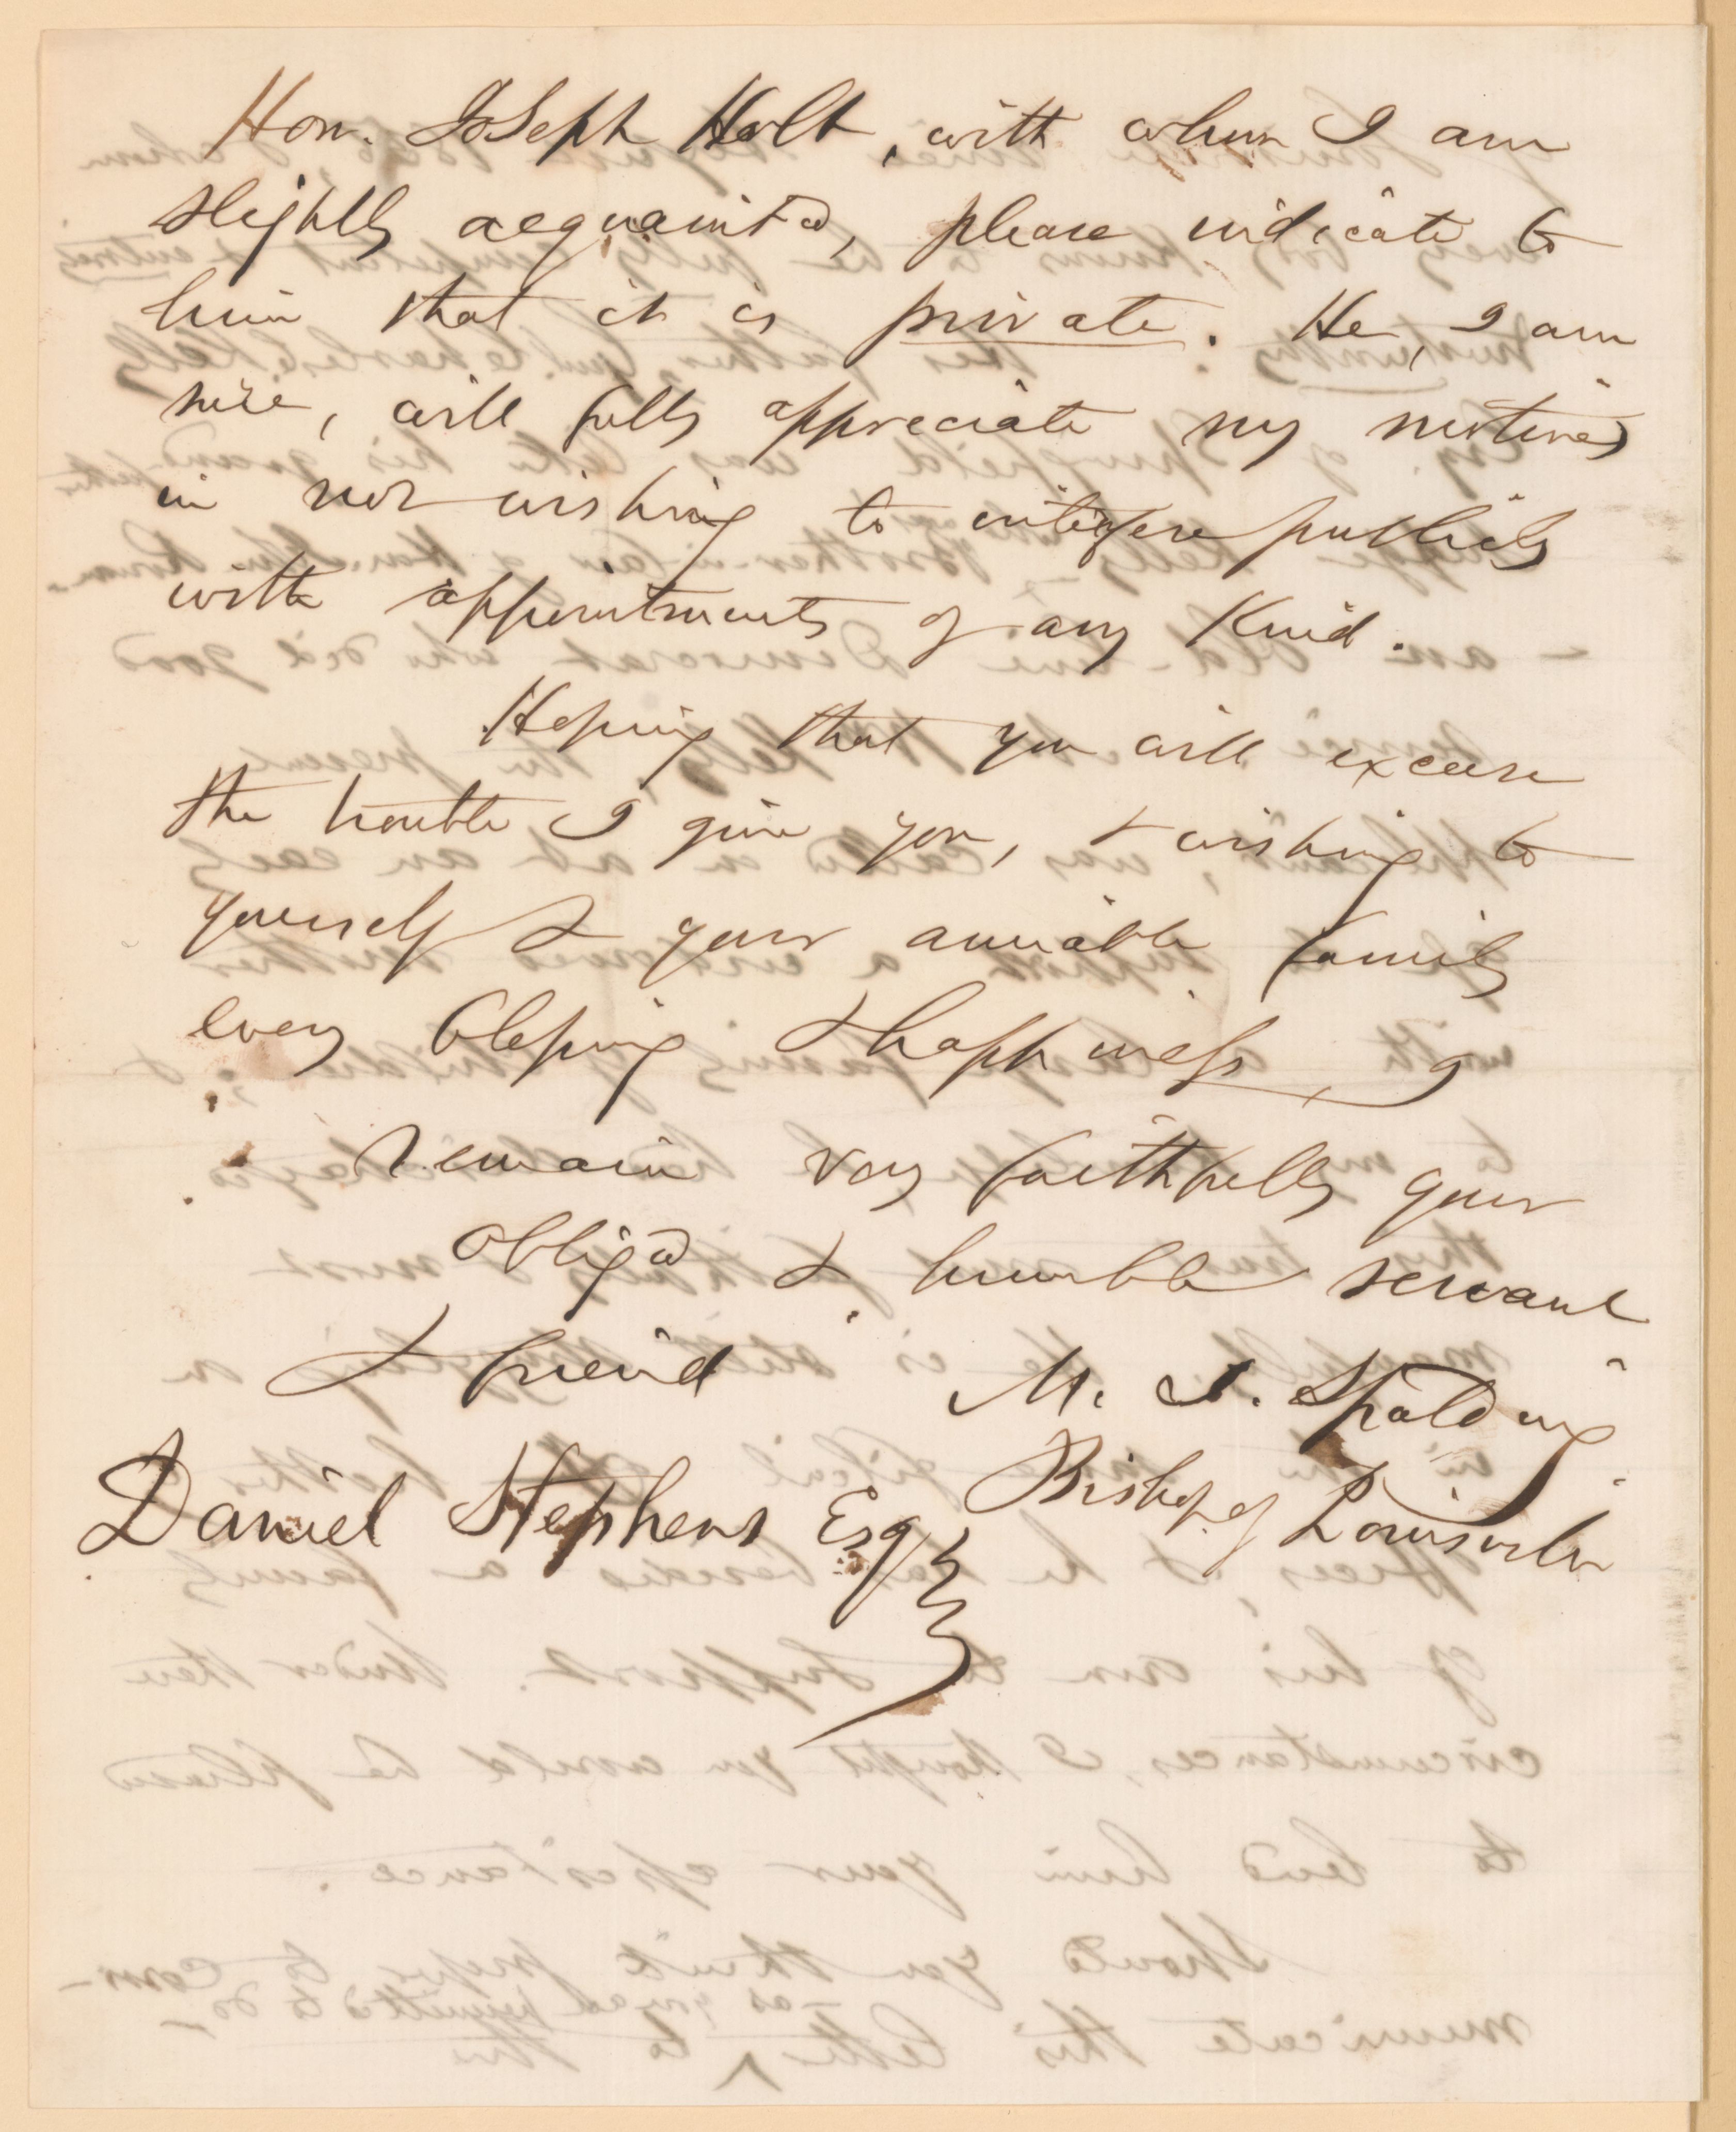 Hon. Joseph Holt, with whom I am
slightly acquainted, please indicate to
him that it is private. He, I am
sure, will fully appreciate my motives
in not wishing to interfere publicly
with appointments of any kind.
Hoping that you will excuse
the trouble I give you, & wishing to
yourself & your amiable family
every blessing & happiness, I
remain very faithfully your
obliged & humble servant
& friend
M. J. Spalding
Bishop of Louisville
Daniel Stephens Esq